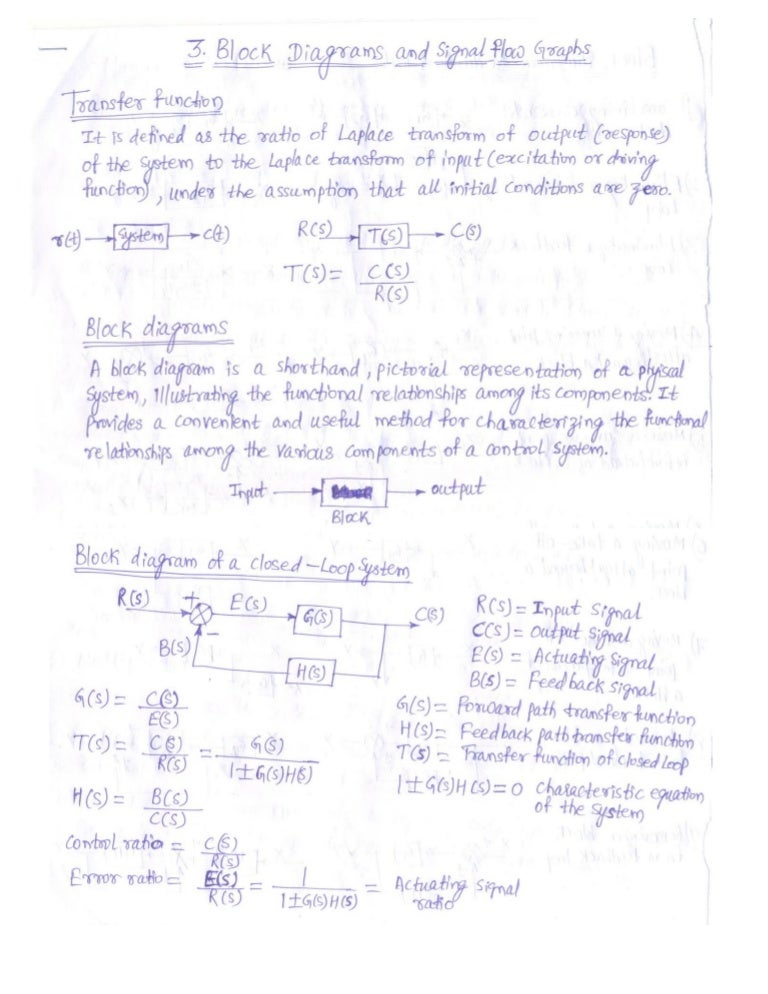 3. Block Diagrams and Signal flow Graphs
Transfer function
It is defined as the ratio of Laplace transform of output (response)
of the system to the Laplace transform of input (excitation or driving
function), under the assumption that all initial conditions are zero.
r(t) System c(t) R(S) T(S) C(S)
T(S) = C(S)
R(S)
Block diagrams
A block diagram is a shorthand, pictorial representation of a phyiscal
System, Illustrating the functional relationships among its components. It
Provides a convenient and useful method for characterizing the functional
relationships among the various components of a control system.
Input output
Block
Block diagram of a closed-Loop System
R(S) + E(S) G(S) C(S)
B(S) - H(S)
R(S) = Input Signal
C(S) = output Signal
E(S) = Actuating Signal
B(S) = Feedback signal
G(S) = Forward path transfer function
H(S) = Feedback path transfer function
T(S) = Transfer function of closed Loop
1±G(S)H(S) = 0 characteristic equation
of the system
G(S) = C(S)
E(S)
T(S) = C(S) = G(S)
R(S) 1±G(S)H(S)
H(S) = B(S)
C(S)
Control ratio = C(S)
R(S)
Error ratio = E(S) = 1 = Actuating Signal
R(S) 1±G(S)H(S) ratio